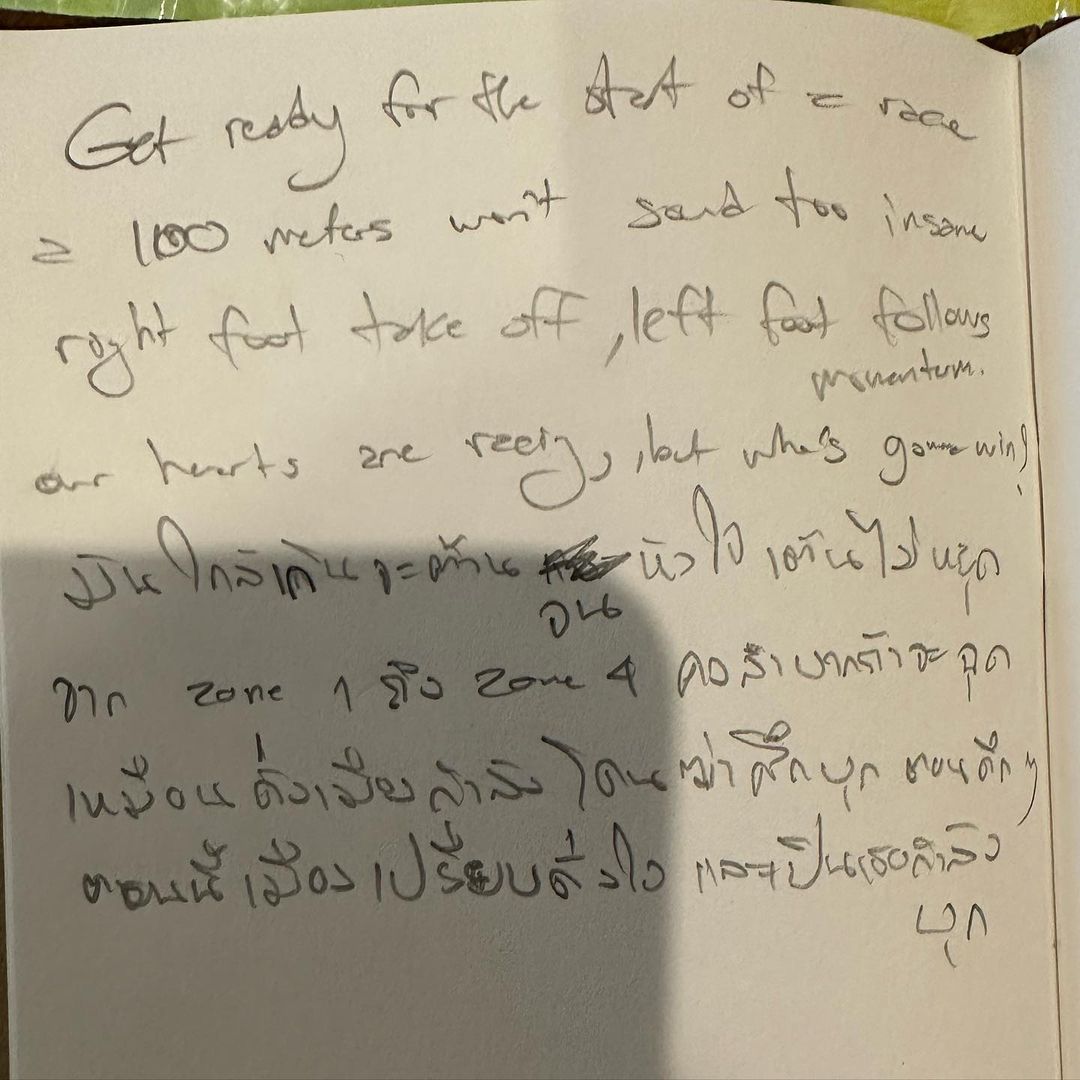 Get ready for the start of a race
a 100 meters won't sound too insane
right foot take off, left foot follows
momentum.
our hearts are racing, but who's gonna win?
มันใกล้เกินจะต้าน หัวใจเต้นไม่หยุด
จน
จาก zone 1 ถึง zone 4 คงลำบากถ้าจะฉุด
เหมือนดั่งเมืองกำลังโดนข้าศึกบุกตอนดึกๆ
ตอนนี้เมืองเปรียบดั่งใจ และเป็นเธอกำลัง
บุก